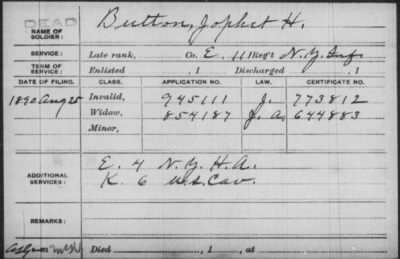 DEAD
NAME OF SOLDIER: Button, Jophet H.
SERVICE: Late rank, Co. E, 11 Reg't N.Y. Inf
TERM OF SERVICE: Enlisted , 1 Discharged , 1
DATE OF FILING. CLASS. APPLICATION NO. LAW. CERTIFICATE NO.
1890 Aug 25 Invalid, 945111 J. 773812
Widow, 854187 J. A. 644883
Minor,
ADDITIONAL SERVICES: E. 4 N.Y. H.A.
K. 6 U.S. Cav.
REMARKS:
Died , 1 , at